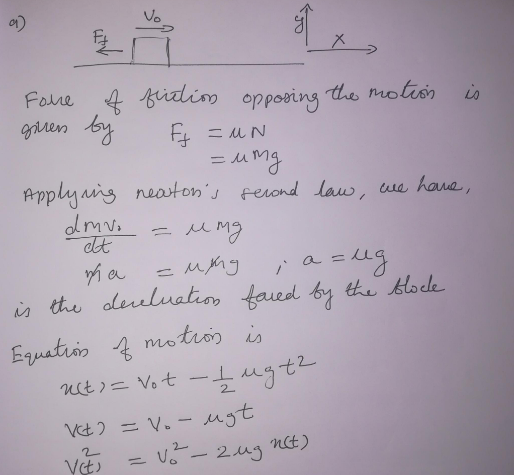 a)
V₀
F_f
y
x
Force of friction opposing the motion is
given by F_f = μN
= μmg
Applying newton's second law, we have,
dmv₀/dt = μmg
ma = μmg ; a = μg
is the deceleration faced by the block
Equation of motion is
x(t) = V₀t - 1/2 μgt²
V(t) = V₀ - μgt
V²(t) = V₀² - 2μg x(t)